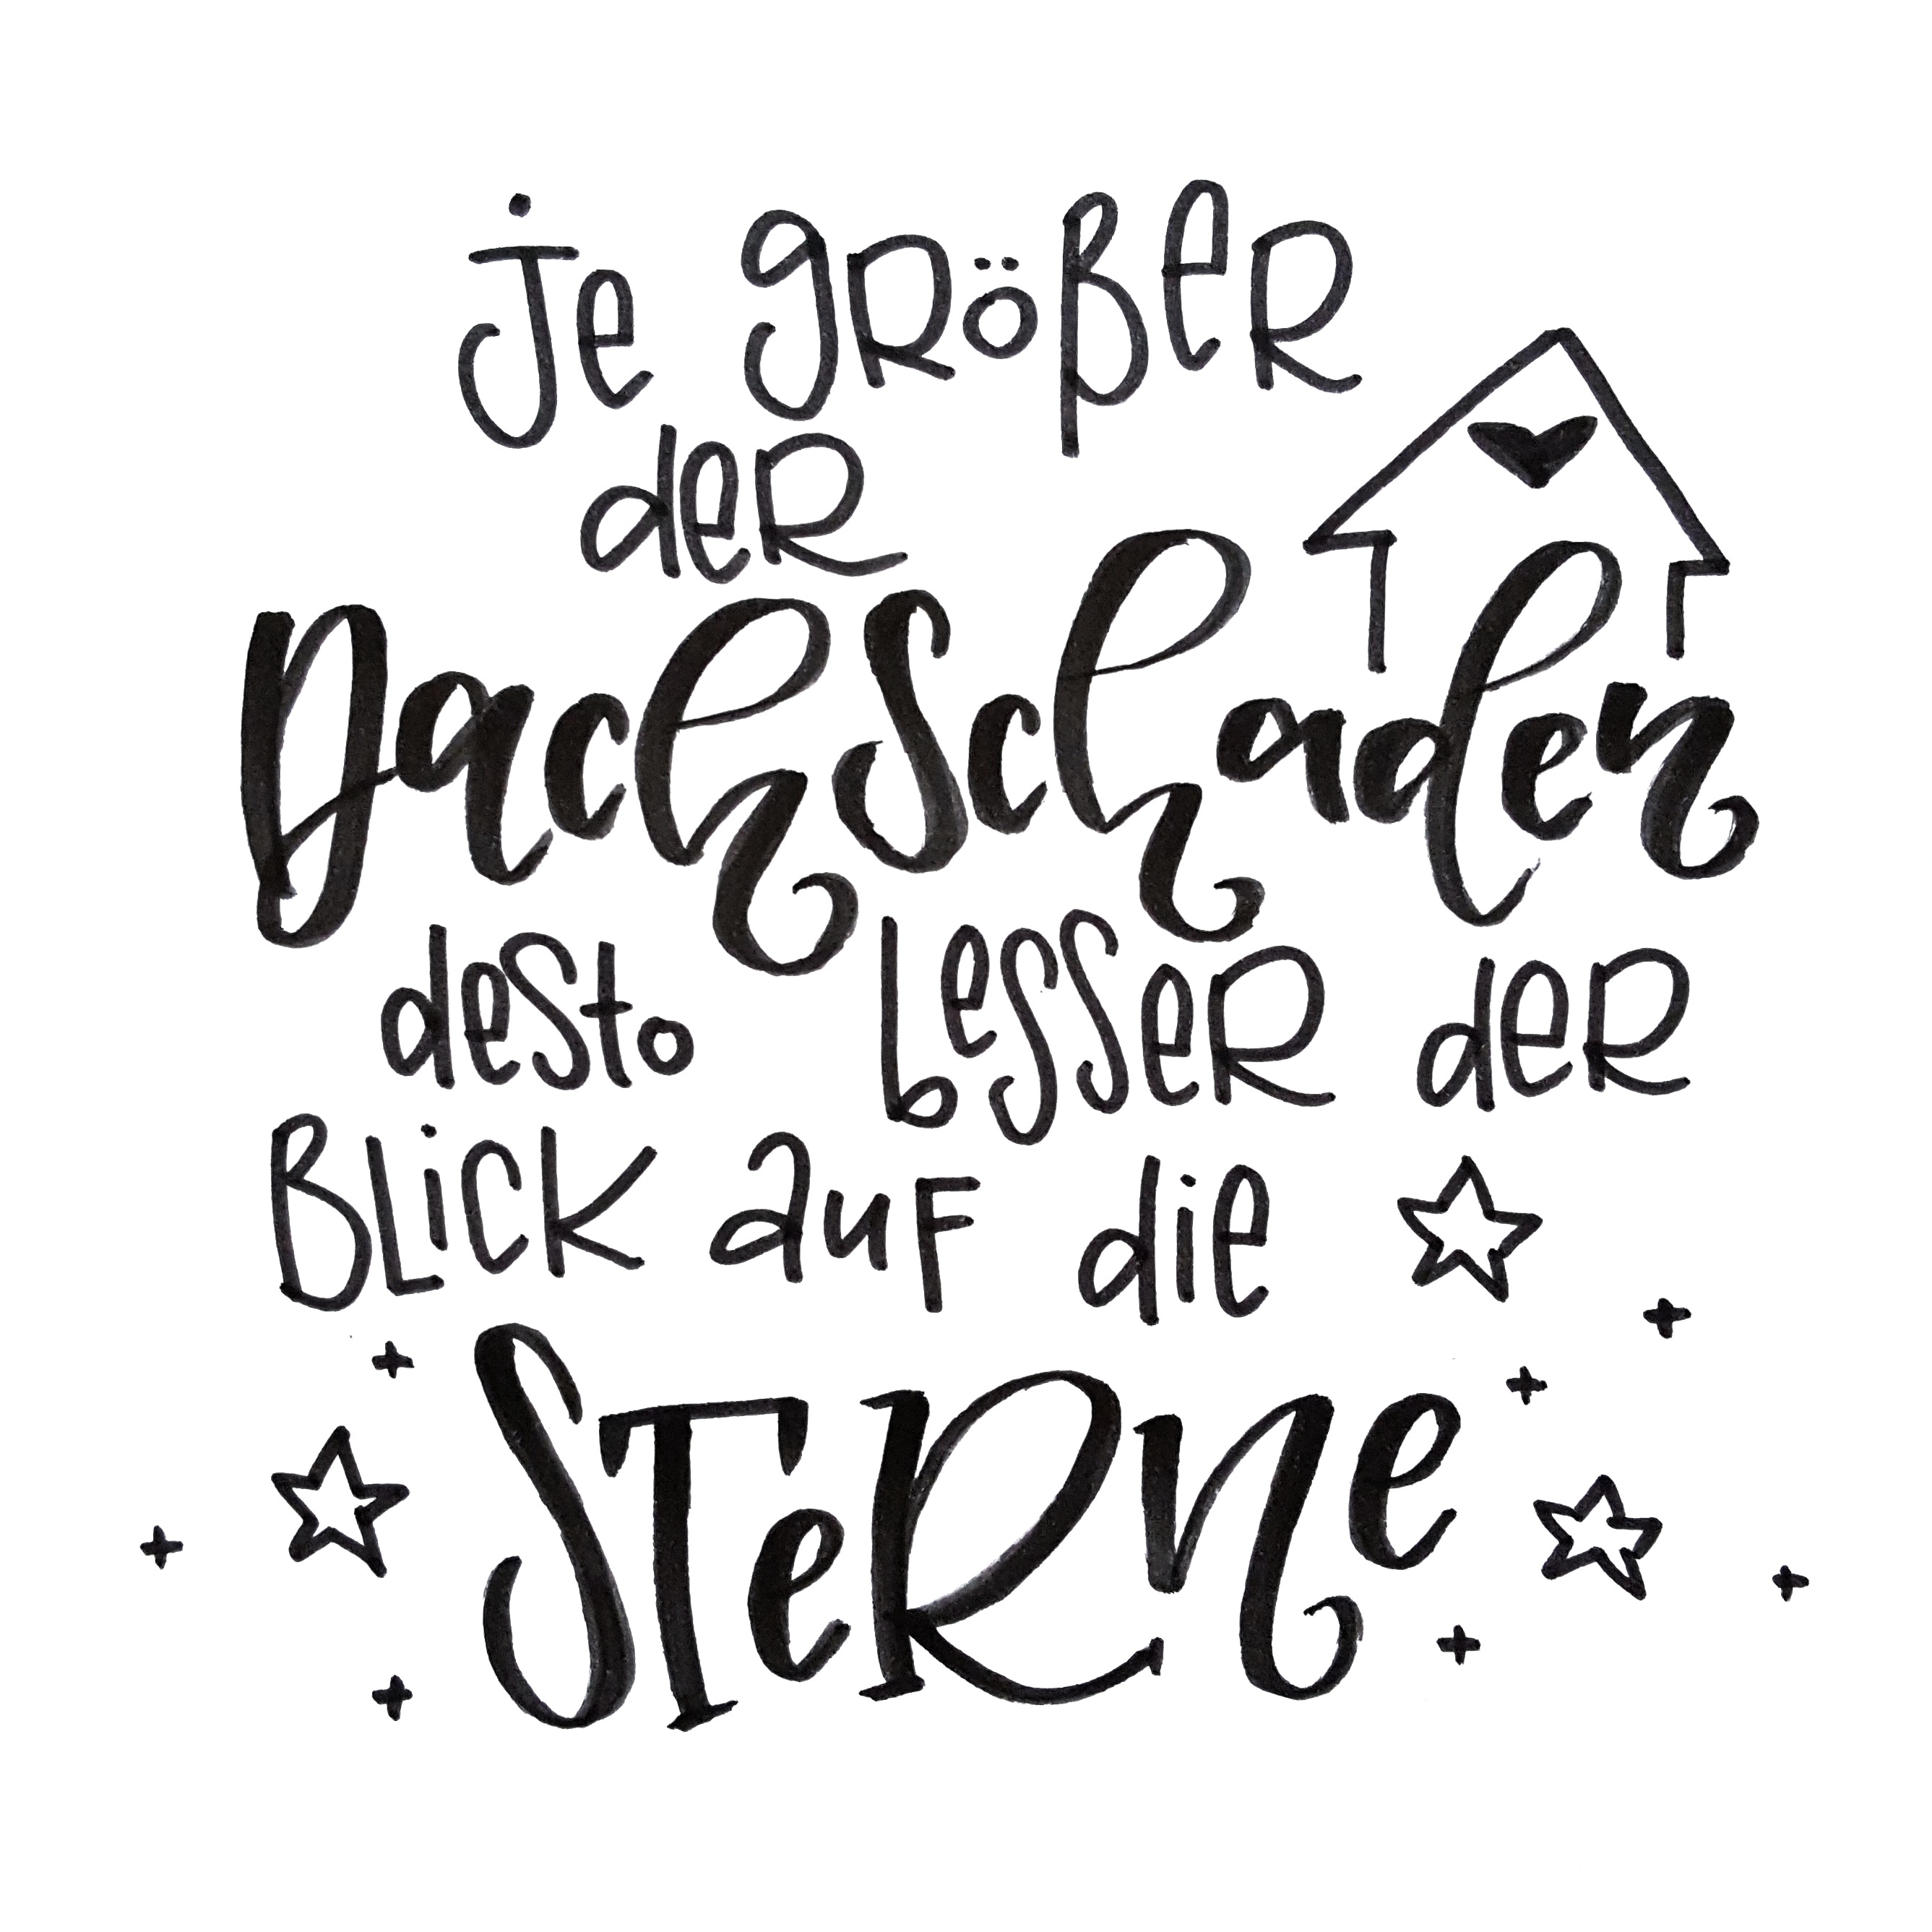 je größer
der
Dachschaden
desto besser der
Blick auf die
STeRne